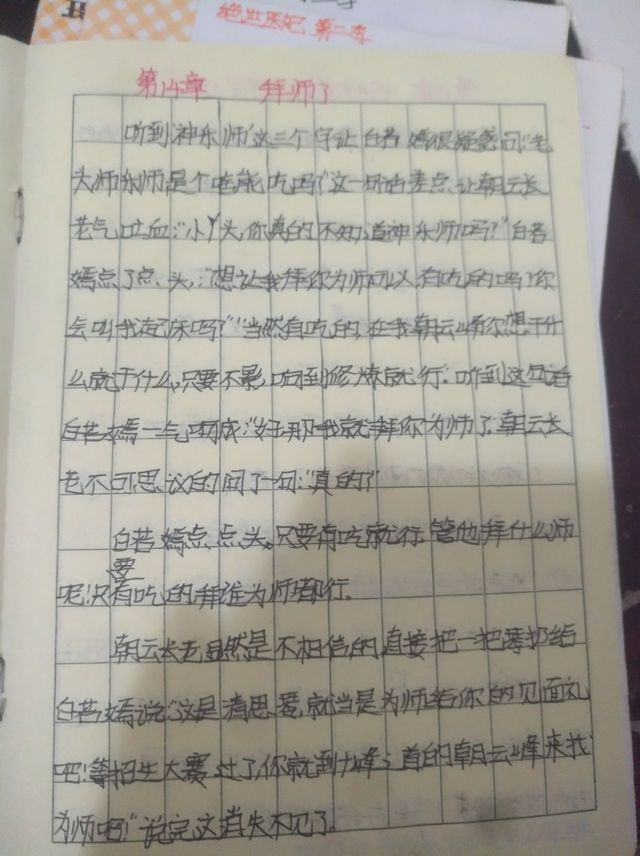 绝世医妃 第二季
第14章 拜师了
听到"神东师"这三个字让白若嫣很疑惑问:"老
头师东师是个啥能吃吗?"这一句话差点让朝云长
老气吐血:"小丫头,你真的不知道神东师吗?"白若
嫣点了点头,:"想让我拜你为师可以有吃的吗?你
会叫我起床吗?""当然有吃的,在我朝云峰你想干什
么就干什么,只要不影响到修炼就行.听到这句话
白若嫣一气呵成:"好那我就拜你为师了.朝云长
老不可思议的问了一句:"真的?"
白若嫣点点头。只要有吃就行.管他拜什么师
呢!只要有吃的拜谁为师都行.
朝云长老显然是不相信的,直接把一把琴扔给
白若嫣说:"这是清思琴,就当是为师给你的见面礼
吧!等招生大赛过了,你就到峰之首的朝云峰来找
为师吧!"说完这消失不见了.